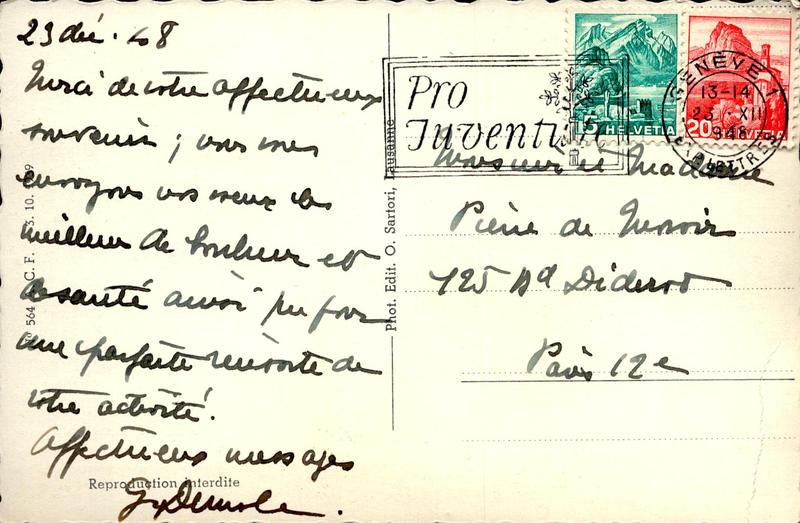 23 déc. 48
Merci de votre affectueux
souvenir ; vous mes
envoyons vos vœux les
meilleurs de bonheur et
de santé ainsi que pour
une parfaite réussite de
votre activité.
Affectueux messages
Reproduction interdite
564 C. F. S. 10. 9
Phot. Edit. O. Sartori, Lausanne
Pro
Juventute
HELVETIA
20 HELVETIA
GENÈVE 1
13-14
23. XII
948
EXP. LETTRES
Monsieur et Madame
Pierre de
125 Bd Diderot
Paris 12e